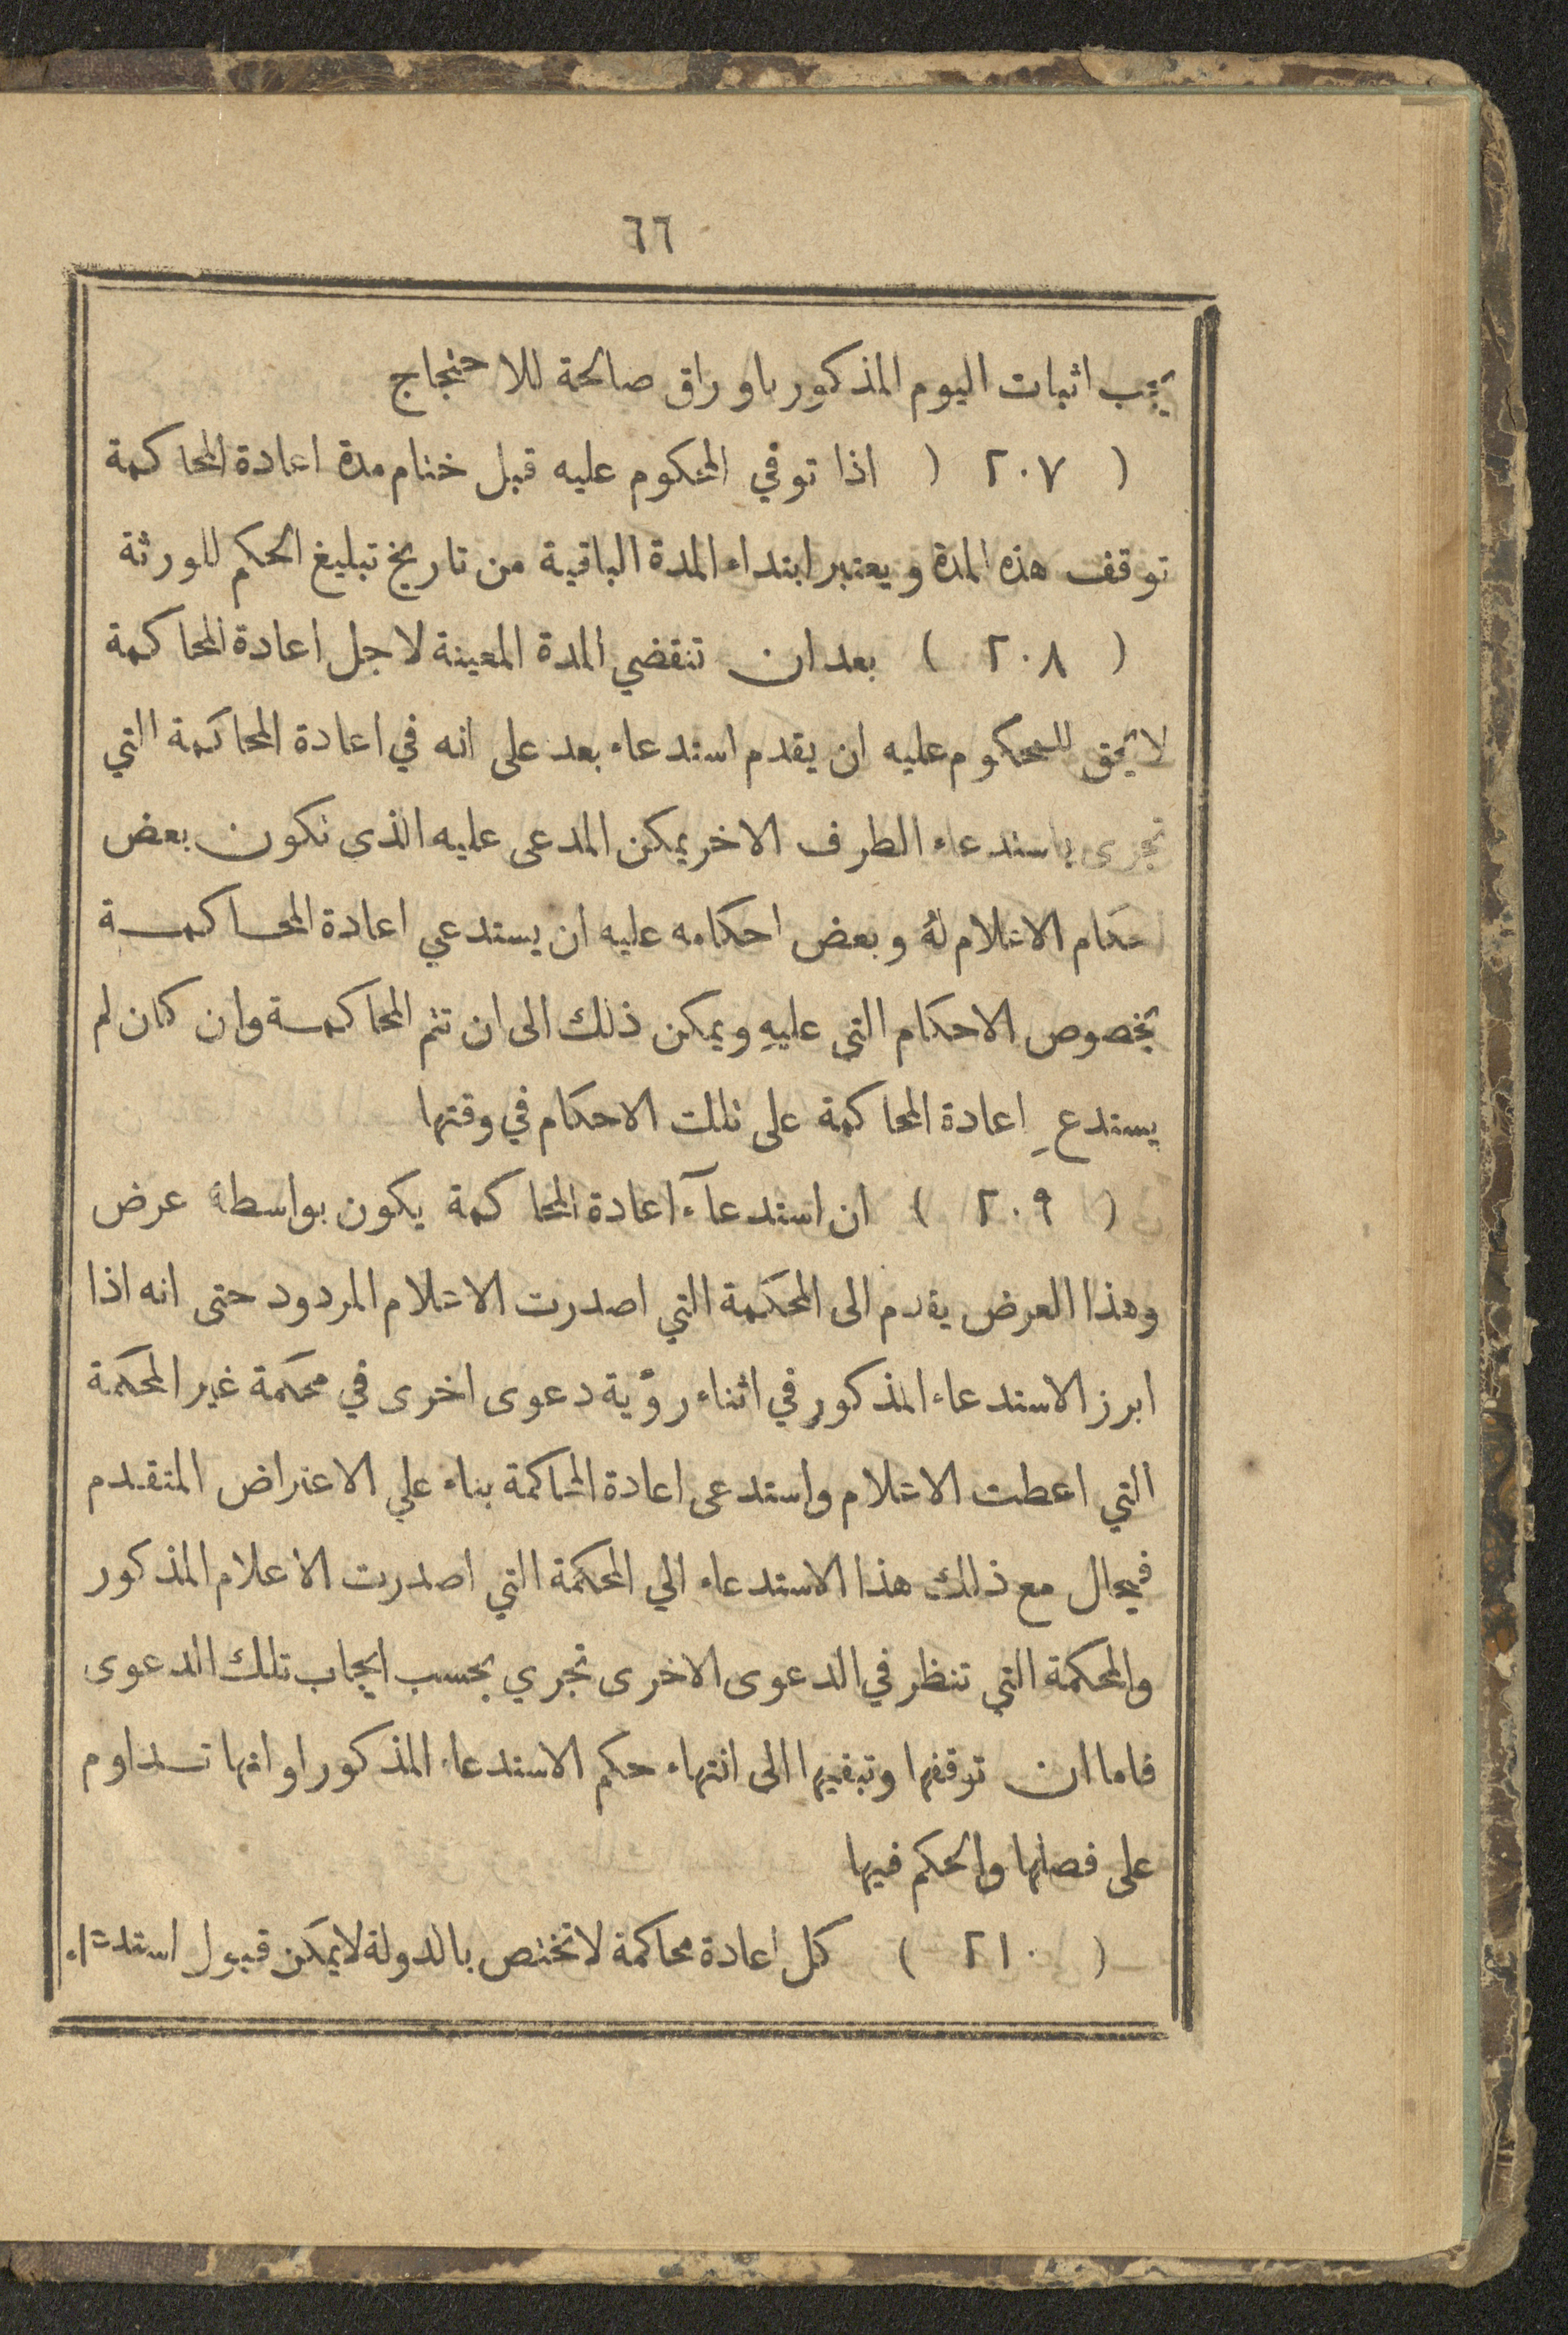 ٦٦
يجب اثبات اليوم المذكور باوراق صالحة للاحتجاج
( ٢٠٧ ) اذا توفي المحكوم عليه قبل ختام مدة اعادة المحاكمة
توقف هذه المدة ويعتبر ابتداء المدة الباقية من تاريخ تبليغ الحكم للورثة
( ٢٠٨ ) بعد ان تنقضي المدة المعينة لاجل اعادة المحاكمة
لا يحق للمحكوم عليه ان يقدم استدعاء بعد على انه في اعادة المحاكمة التي
تجرى باستدعاء الطرف الاخر يمكن المدعى عليه الذى تكون بعض
احكام الاعلام لهُ وبعض احكامه عليه ان يستدعي اعادة المحاكمة
بخصوص الاحكام التي عليهِ ويمكن ذلك الى ان تتم المحاكمة وان كان لم
يستدعِ اعادة المحاكمة على تلك الاحكام في وقتها
( ٢٠٩ ) ان استدعآء اعادة المحاكمة يكون بواسطة عرض
وهذا العرض يقدم الى المحكمة التي اصدرت الاعلام المردود حتى انه اذا
ابرز الاستدعاء المذكور في اثناء رؤية دعوى اخرى في محكمة غير المحكمة
التي اعطت الاعلام واستدعى اعادة المحاكمة بناء علي الاعتراض المتقدم
فيحال مع ذلك هذا الاستدعاء الي المحكمة التي اصدرت الاعلام المذكور
والمحكمة التي تنظر في الدعوى الاخرى تجري بحسب ايجاب تلك الدعوى
فاما ان توقفها وتبقيها الى انتهاء حكم الاستدعاء المذكور او انها تداوم
على فصلها والحكم فيها
( ٢١٠ ) كل اعادة محاكمة لا تختص بالدولة لا يمكن قبول استدعاء